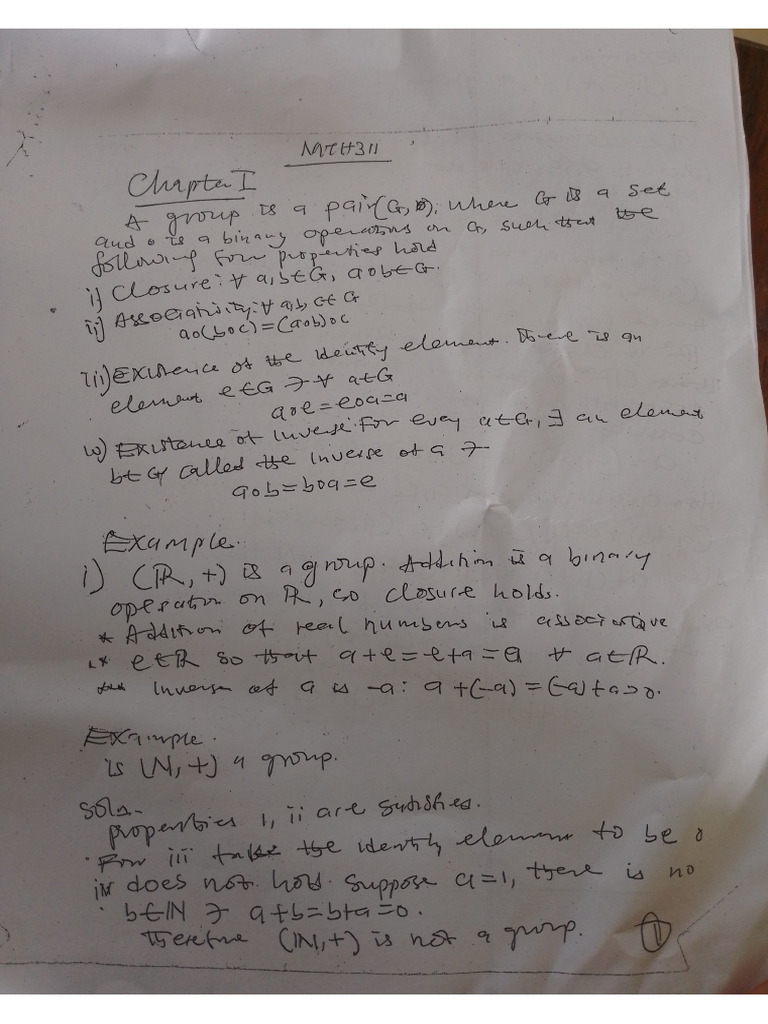 MTH311
Chapter I
A group is a pair (G, o), where G is a set
and o is a binary operations on G, such that the
following four properties hold
i) Closure: ∀ a,b∈G, aob∈G.
ii) Associativity: ∀ a,b,c∈G
ao(boc)=(aob)oc
iii) Existence of the identity element. There is an
element e∈G ∋ ∀ a∈G
aoe=eoa=a
iv) Existence of inverse: For every a∈G, ∃ an element
b∈G called the inverse of a ∋
aob=boa=e
Example.
i) (ℝ, +) is a group. Addition is a binary
operation on ℝ, so closure holds.
* Addition of real numbers is associative
* e∈ℝ so that a+e=e+a=a ∀ a∈ℝ.
** Inverse of a is -a: a+(-a)=(-a)+a=0.
Example.
is (ℕ,+) a group.
Soln-
properties i, ii are satisfies.
For iii take the identity element to be 0
iv does not hold. Suppose a=1, there is no
b∈ℕ ∋ a+b=b+a=0.
Therefore (ℕ,+) is not a group.
1